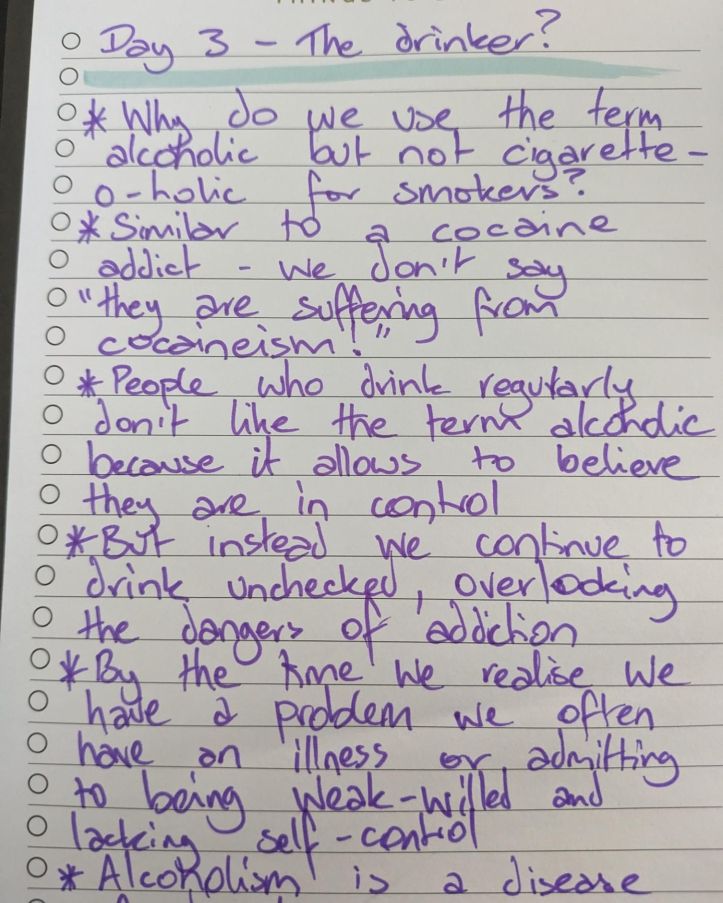 Day 3 - The drinker?
* Why do we use the term
alcoholic but not cigarette-
o-holic for smokers?
* Similar to a cocaine
addict - we don't say
"they are suffering from
cocaineism!"
* People who drink regularly
don't like the term alcoholic
because it allows to believe
they are in control
* But instead we continue to
drink unchecked, overlooking
the dangers of addiction
* By the time we realise we
have a problem we often
have an illness or admitting
to being weak-willed and
lacking self-control
* Alcoholism is a disease